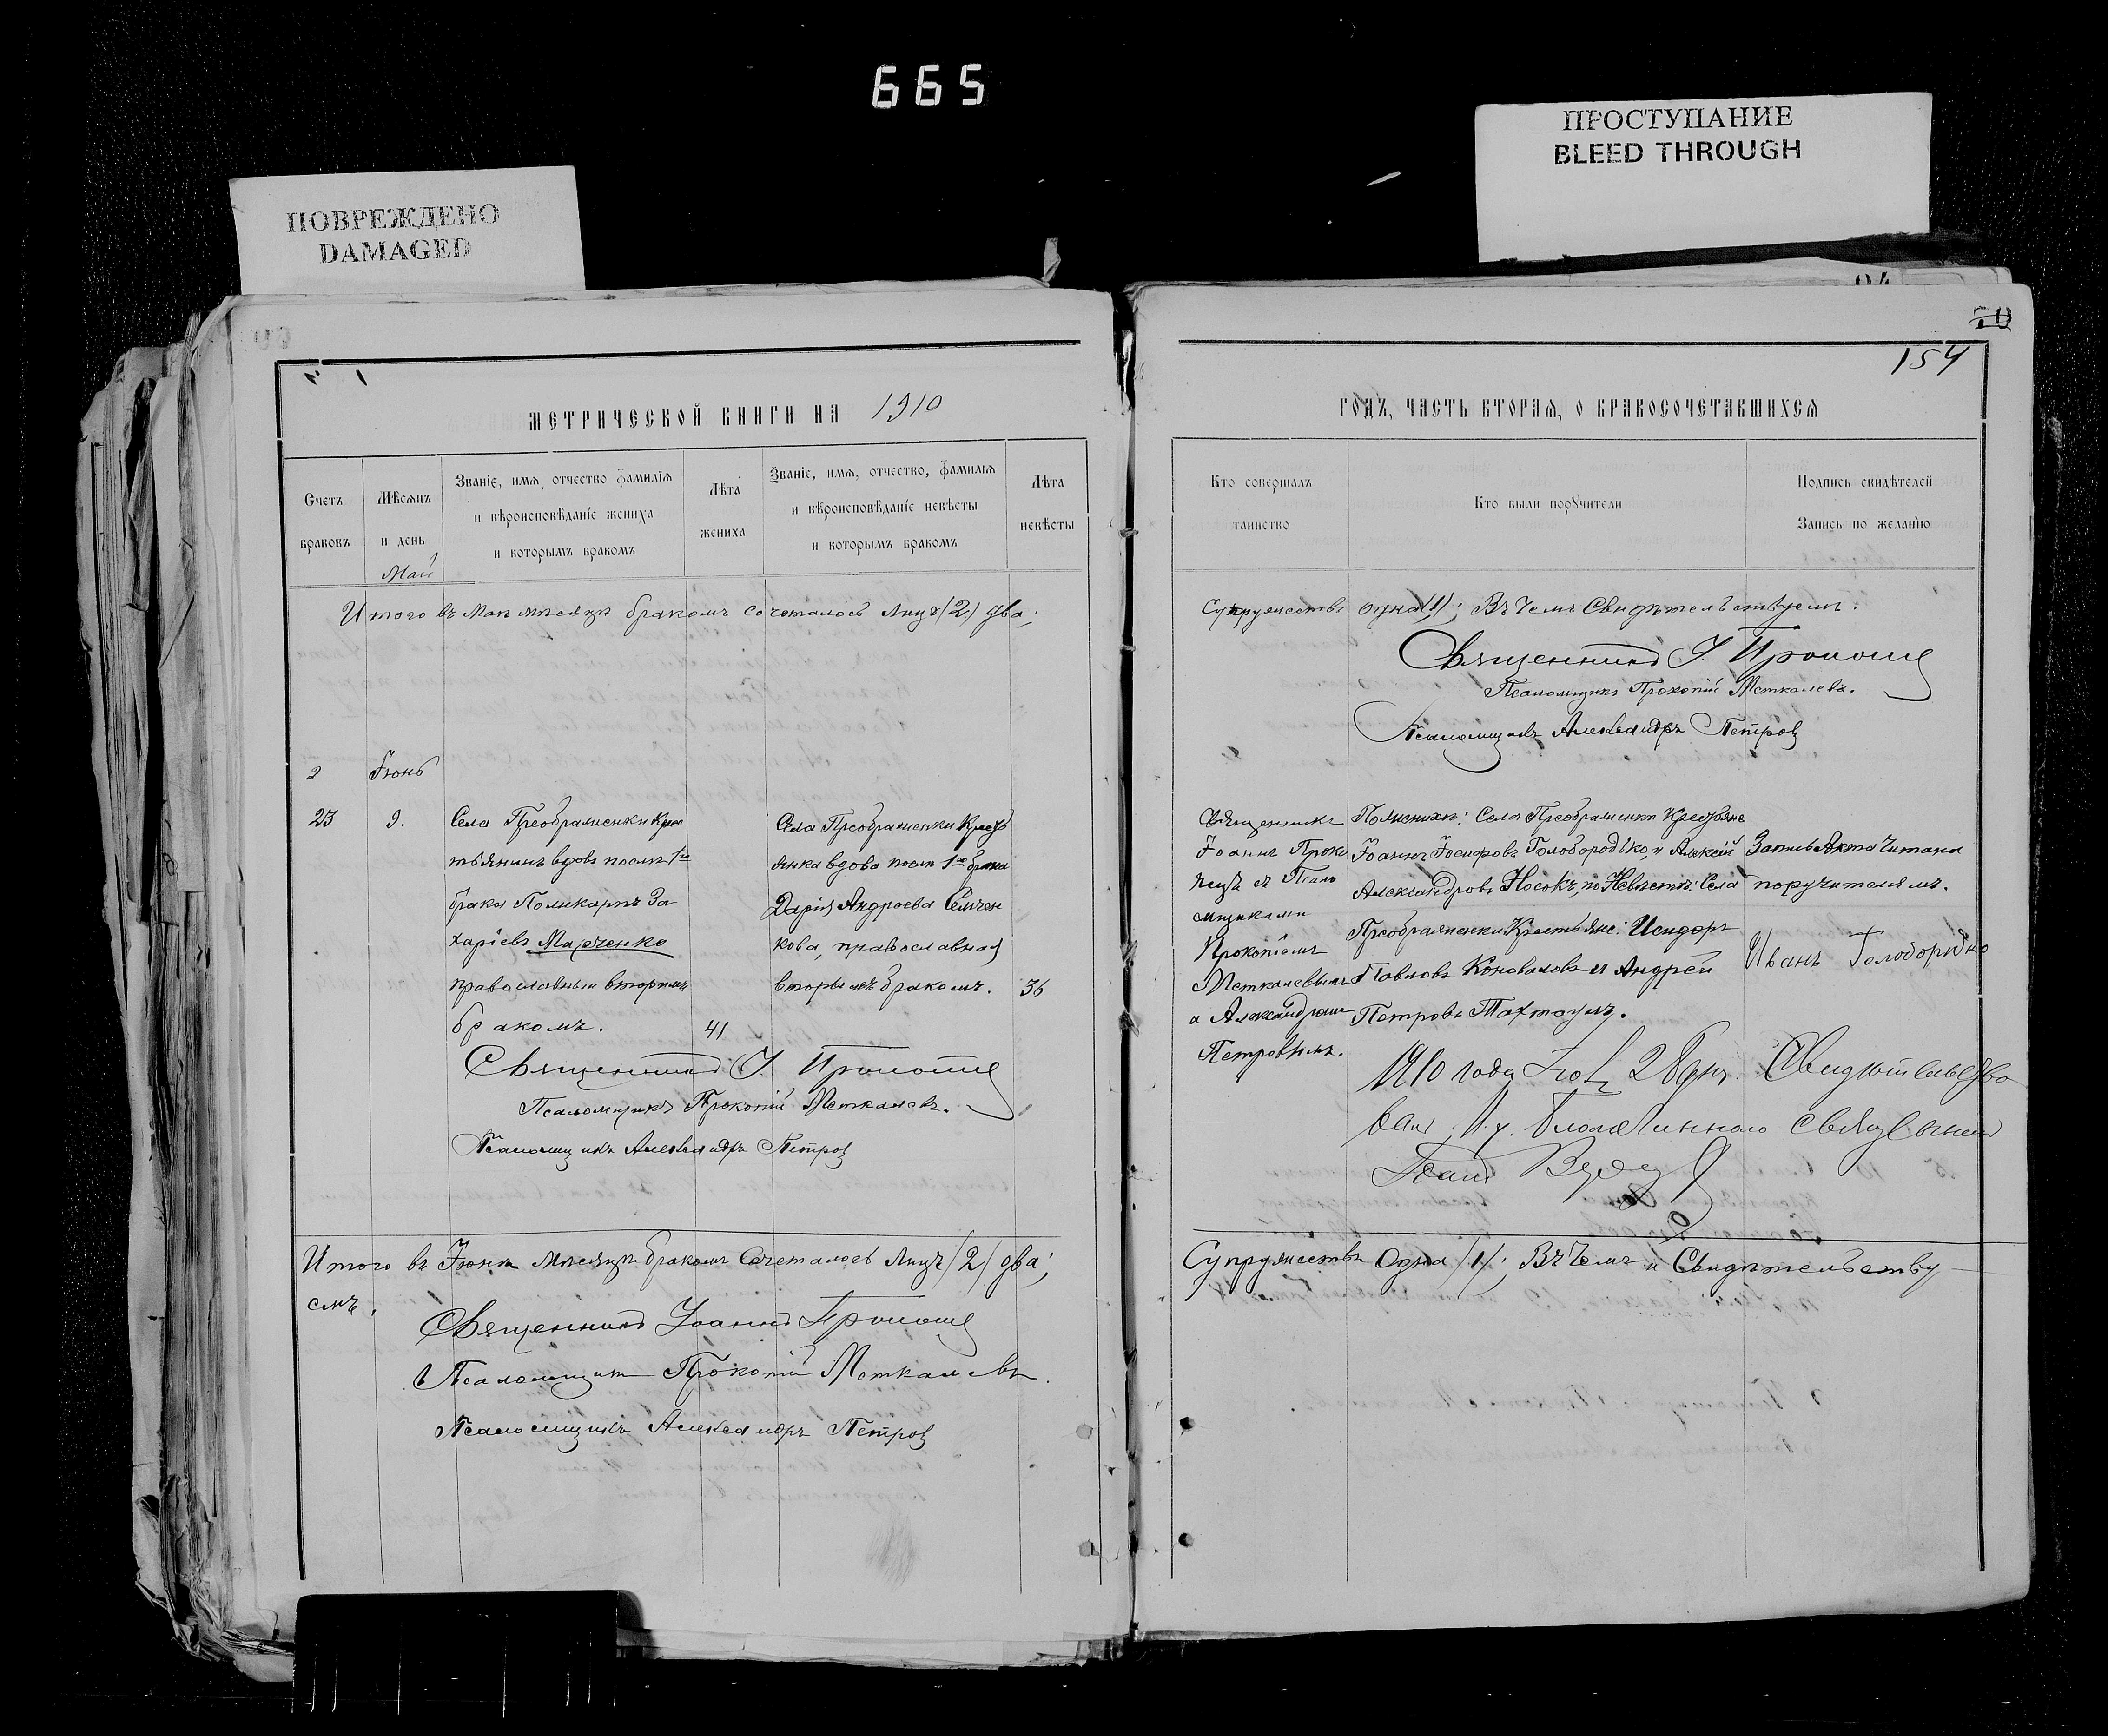 665
ПРОСТУПАНИЕ
BLEED THROUGH
ПОВРЕЖДЕНО
DAMAGED
70
154
МЕТРИЧЕСКОЙ КНИГИ НА 1910
Счетъ браковъ
Мѣсяцъ и день
Званіе, имя, отчество фамилія и вѣроисповѣданіе жениха и которымъ бракомъ
Лѣта жениха
Званіе, имя, отчество, фамилія и вѣроисповѣданіе невѣсты и которымъ бракомъ
Лѣта невѣсты
Май
Итого въ Маѣ мѣсяцѣ бракомъ сочеталось лицъ (2) два;
2 Іюнь
23 9.
Села Преображенки Крес
тьянинъ вдовъ послѣ 1го
брака Поликарпъ За
харіевъ Марченко
православный вторымъ
бракомъ.
41
Села Преображенки Кресть
янка вдова послѣ 1го брака
Дарія Андреева Семчен
кова, православная
вторымъ бракомъ.
36
Священникъ І. Прокопецъ
Псаломщикъ Прокопій Меткалевъ.
Псаломщикъ Александръ Петровъ
Итого въ Іюнѣ мѣсяцѣ бракомъ сочеталось лицъ (2) два;
емъ.
Священникъ Іоаннъ Прокопецъ
Псаломщикъ Прокопій Меткалевъ.
Псаломщикъ Александръ Петровъ
ГОДЪ, ЧАСТЬ ВТОРАЯ, О БРАКОСОЧЕТАВШИХСЯ
Кто совершалъ таинство
Кто были поручители
Подпись свидѣтелей Запись по желанію
Супружествъ одна (1); Въ чемъ Свидѣтельствуемъ:
Священникъ І. Прокопецъ
Псаломщикъ Прокопій Меткалевъ.
Псаломщикъ Александръ Петровъ
Священникъ
Іоаннъ Проко
пецъ съ Псало
мщиками
Прокопіемъ
Меткалевымъ
и Александромъ
Петровымъ.
По женихѣ: Села Преображенки Крестьяне
Іоаннъ Іосифовъ Голобородько, и Алексѣй
Александровъ Носокъ, по Невѣстѣ: Села
Преображенки Крестьяне: Исидоръ
Павловъ Коноваловъ и Андрей
Петровъ Тахтаулъ.
Запись Акта Читана
поручителямъ.
Иванъ Голобородько
1910 года 28 дня. Свидѣтельство
валъ Благочинного священникъ
Супружествъ Одна (1); Въ Чемъ и Свидѣтельству